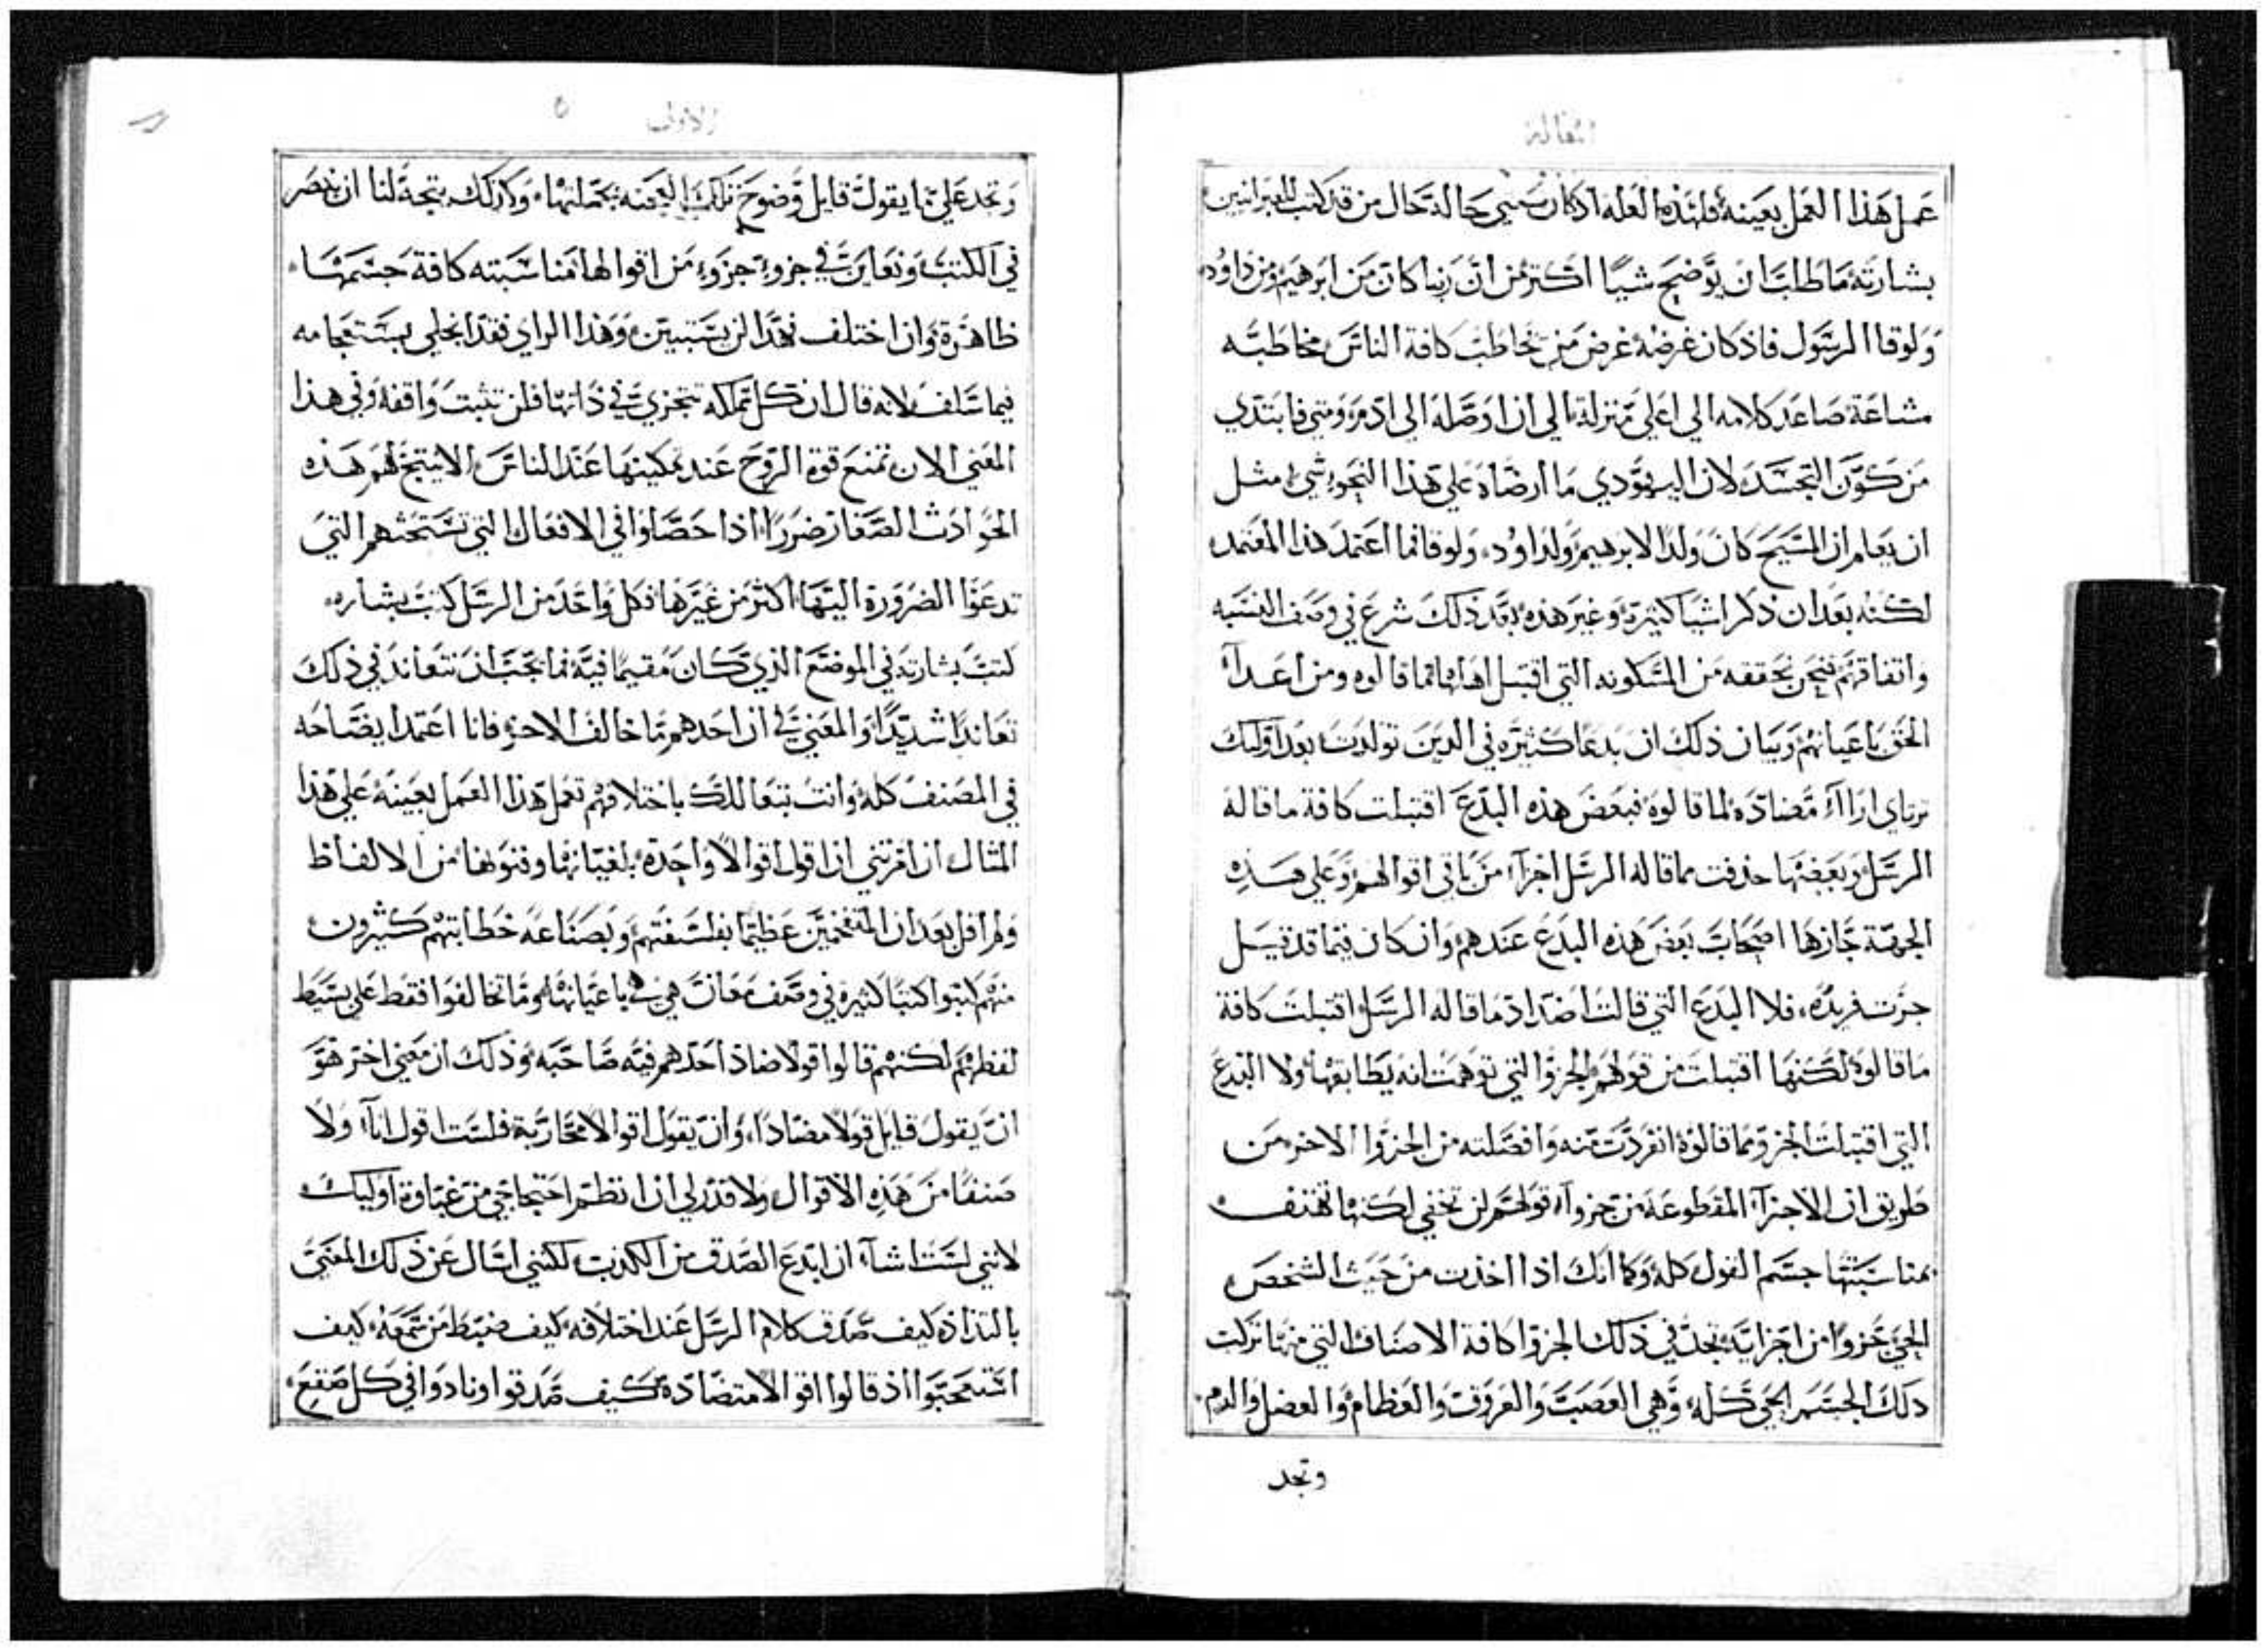 المقالة
عمل هذا العمل بعينه فلهذه العله اذ كان متي حاله حال من قد كتب للعبرانيين
بشارته ما طلب ان يوضح شيًا اكثر من ان ربنا كان من ابرهيم ومن داود
ولوقا الرسول فاذ كان غرضه غرض من يخاطب كافة الناس مخاطبه
مشاعة صاعد كلامه الي اعلي منزلة الي ان اوصله الي ادم ومتي فابتدي
من كون التجسد لان اليهودي ما ارضاه علي هذا النحو شي مثل
ان يعلم ان المسيح كان ولدًا لابرهيم ولداود ولوقا فما اعتمد هذا المعتمد
لكنه بعد ان ذكر اشيا كثيرة وغير هذه بعد ذلك شرع في وصف النسبه
واتفاقهم فنحن نحققه من المسكونه التي اقتبل اهلها ما قالوه ومن اعدآ
الحق باعيانهم وبيان ذلك ان بدعًا كثيره في الدين تولدت بعد اوليك
ترتاي ارآآ مضاده لما قالوه فبعض هذه البدع اقتبلت كافة ما قاله
الرسل وبعضها حذفت مما قاله الرسل اجزآ من باقي اقوالهم وعلي هذه
الجهة حازها اصحاب بعض هذه البدع عندهم وان كان فيما قد قيل
جزت فريده، فلا البدع التي قالت اضداد ما قاله الرسل اقتبلت كافة
ما قالوه لكنها اقتبلت من قولهم الجزو التي توهمت انه يطابقها ولا البدع
التي اقتبلت الجزو مما قالوه انفردت منه وافصلته من الجزوا الاخر من
طريق ان الاجزآ المقطوعة من جزوآ قولهم لن تخفي لكنها تهتف
بمناسبتها جسم القول كله وكما انك اذا اخذت من حيث الشخص
الحي جزوا من اجزايه تجد في ذلك الجزوا كافة الاصناف التي منها تركبت
ذلك الجسم الحي كله، وهي العصب والعروق والعظام والعضل والدم.
وتجد
الاولي
٥
وتجد علي ما يقول قايل وضوح تلك العجنه بجملتها، وكذلك يتجه لنا ان نبصر
في الكتب ونعاين في جزوء جزوء من اقوالها مناسبته كافة جسمها
ظاهرة وان اختلف فهذا لن يستبين وهذا الراي فقد انحلي بستعجامه
فيما سلف لانه قال ان كل مملكه تتجزي في ذاتها فلن تثبت واقفه وفي هذا
المعني الان تمنع قوة الروح عند تمكينها عند الناس الا ينتج لهم هذه
الحوادث الصغار ضررًا اذا حصلوا في الافعال التي تستحثهم التي
تدعوا الضرورة اليها اكثر من غيرها فكل واحد من الرسل كتب بشاره
كتب بشارته في الموضع الذي كان مقيمًا فيه فما يجب ان نتعاند في ذلك
تعاندًا شديدًا والمعني في ان احدهم ما خالف الاخر فانا اعتمد ايضاحه
في المصنف كله وانت بتعاللك باختلافهم تعمل هذا العمل بعينه علي هذا
المثال ان امرتني ان اقول اقوالاً واحدة بلغياتها وفنونها من الالفاظ
ولم اقل بعد ان المتفخمين عظيمًا بفلسفتهم وبصناعة خطابتهم كثيرون
منهم كتبوا كتبًا كثيره في وصف معان هي هي باعيانها وما تخالفوا فقط علي بسيط
لفظهم لكنهم قالوا قولا ضاد احدهم فيه صاحبه وذلك ان معني اخر هو
ان يقول قايل قولا مضادًا، وان يقول اقوالا محاربة فلست اقول انآ ولا
صنفًا من هذه الاقوال ولا قدر لي ان انظم احتجاجي من غباوة اوليك
لانني لست اشآ ان ابدع الصدق من الكذب لكنني اسال عن ذلك المعني
بالتذاذ كيف صدق كلام الرسل عند اختلافه كيف ضبط من سمعه كيف
استعجبوا اذ قالوا اقوالا متضادة كيف صدقوا ونادوا في كل صقع